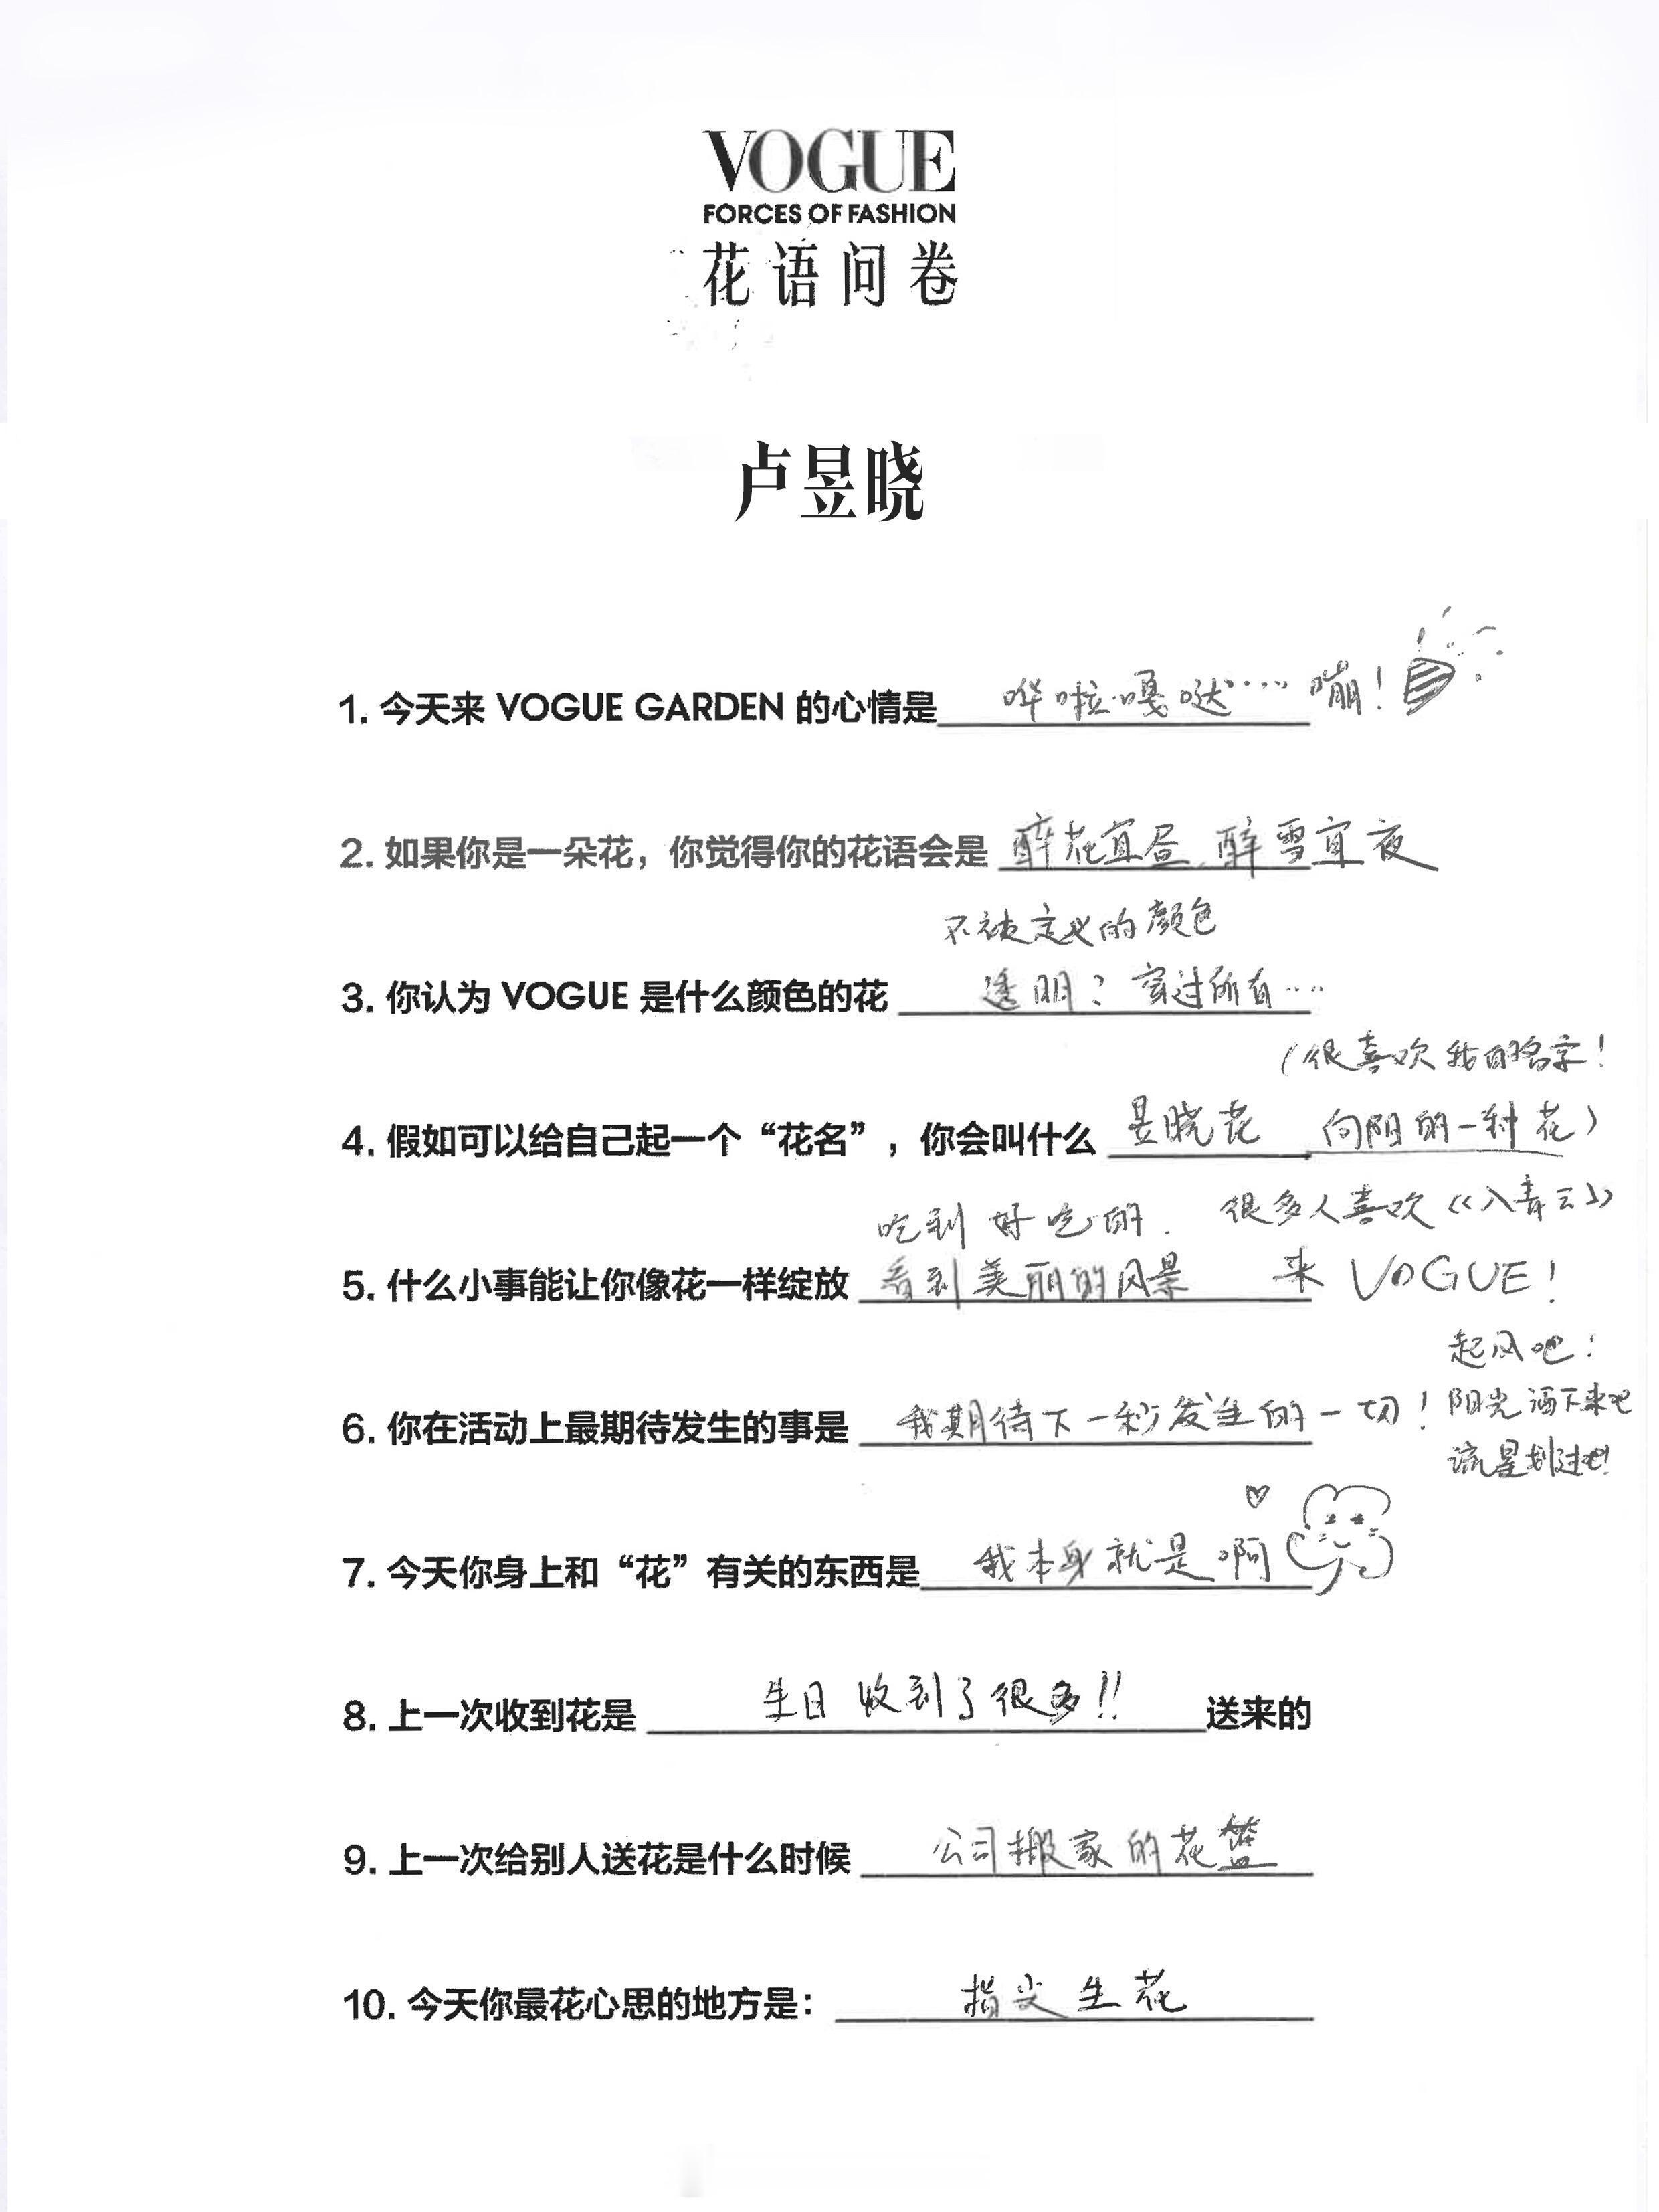 VOGUE
FORCES OF FASHION
花语问卷
卢昱晓
1. 今天来 VOGUE GARDEN 的心情是 哗啦嘎哒…… 嘣！
2. 如果你是一朵花，你觉得你的花语会是 醉花宜昼、醉雪宜夜
不被定义的颜色
3. 你认为 VOGUE 是什么颜色的花 透明？穿过所有……
（很喜欢我的名字！
4. 假如可以给自己起一个“花名”，你会叫什么 昱晓花 向阳的一种花）
吃到好吃的. 很多人喜欢《入青云》
5. 什么小事能让你像花一样绽放 看到美丽的风景 来 VOGUE！
起风吧！
6. 你在活动上最期待发生的事是 我期待下一秒发生的一切！ 阳光洒下来吧
流星划过吧！
7. 今天你身上和“花”有关的东西是 我本身就是啊
8. 上一次收到花是 生日收到了很多!! 送来的
9. 上一次给别人送花是什么时候 公司搬家的花篮
10. 今天你最花心思的地方是： 指尖生花